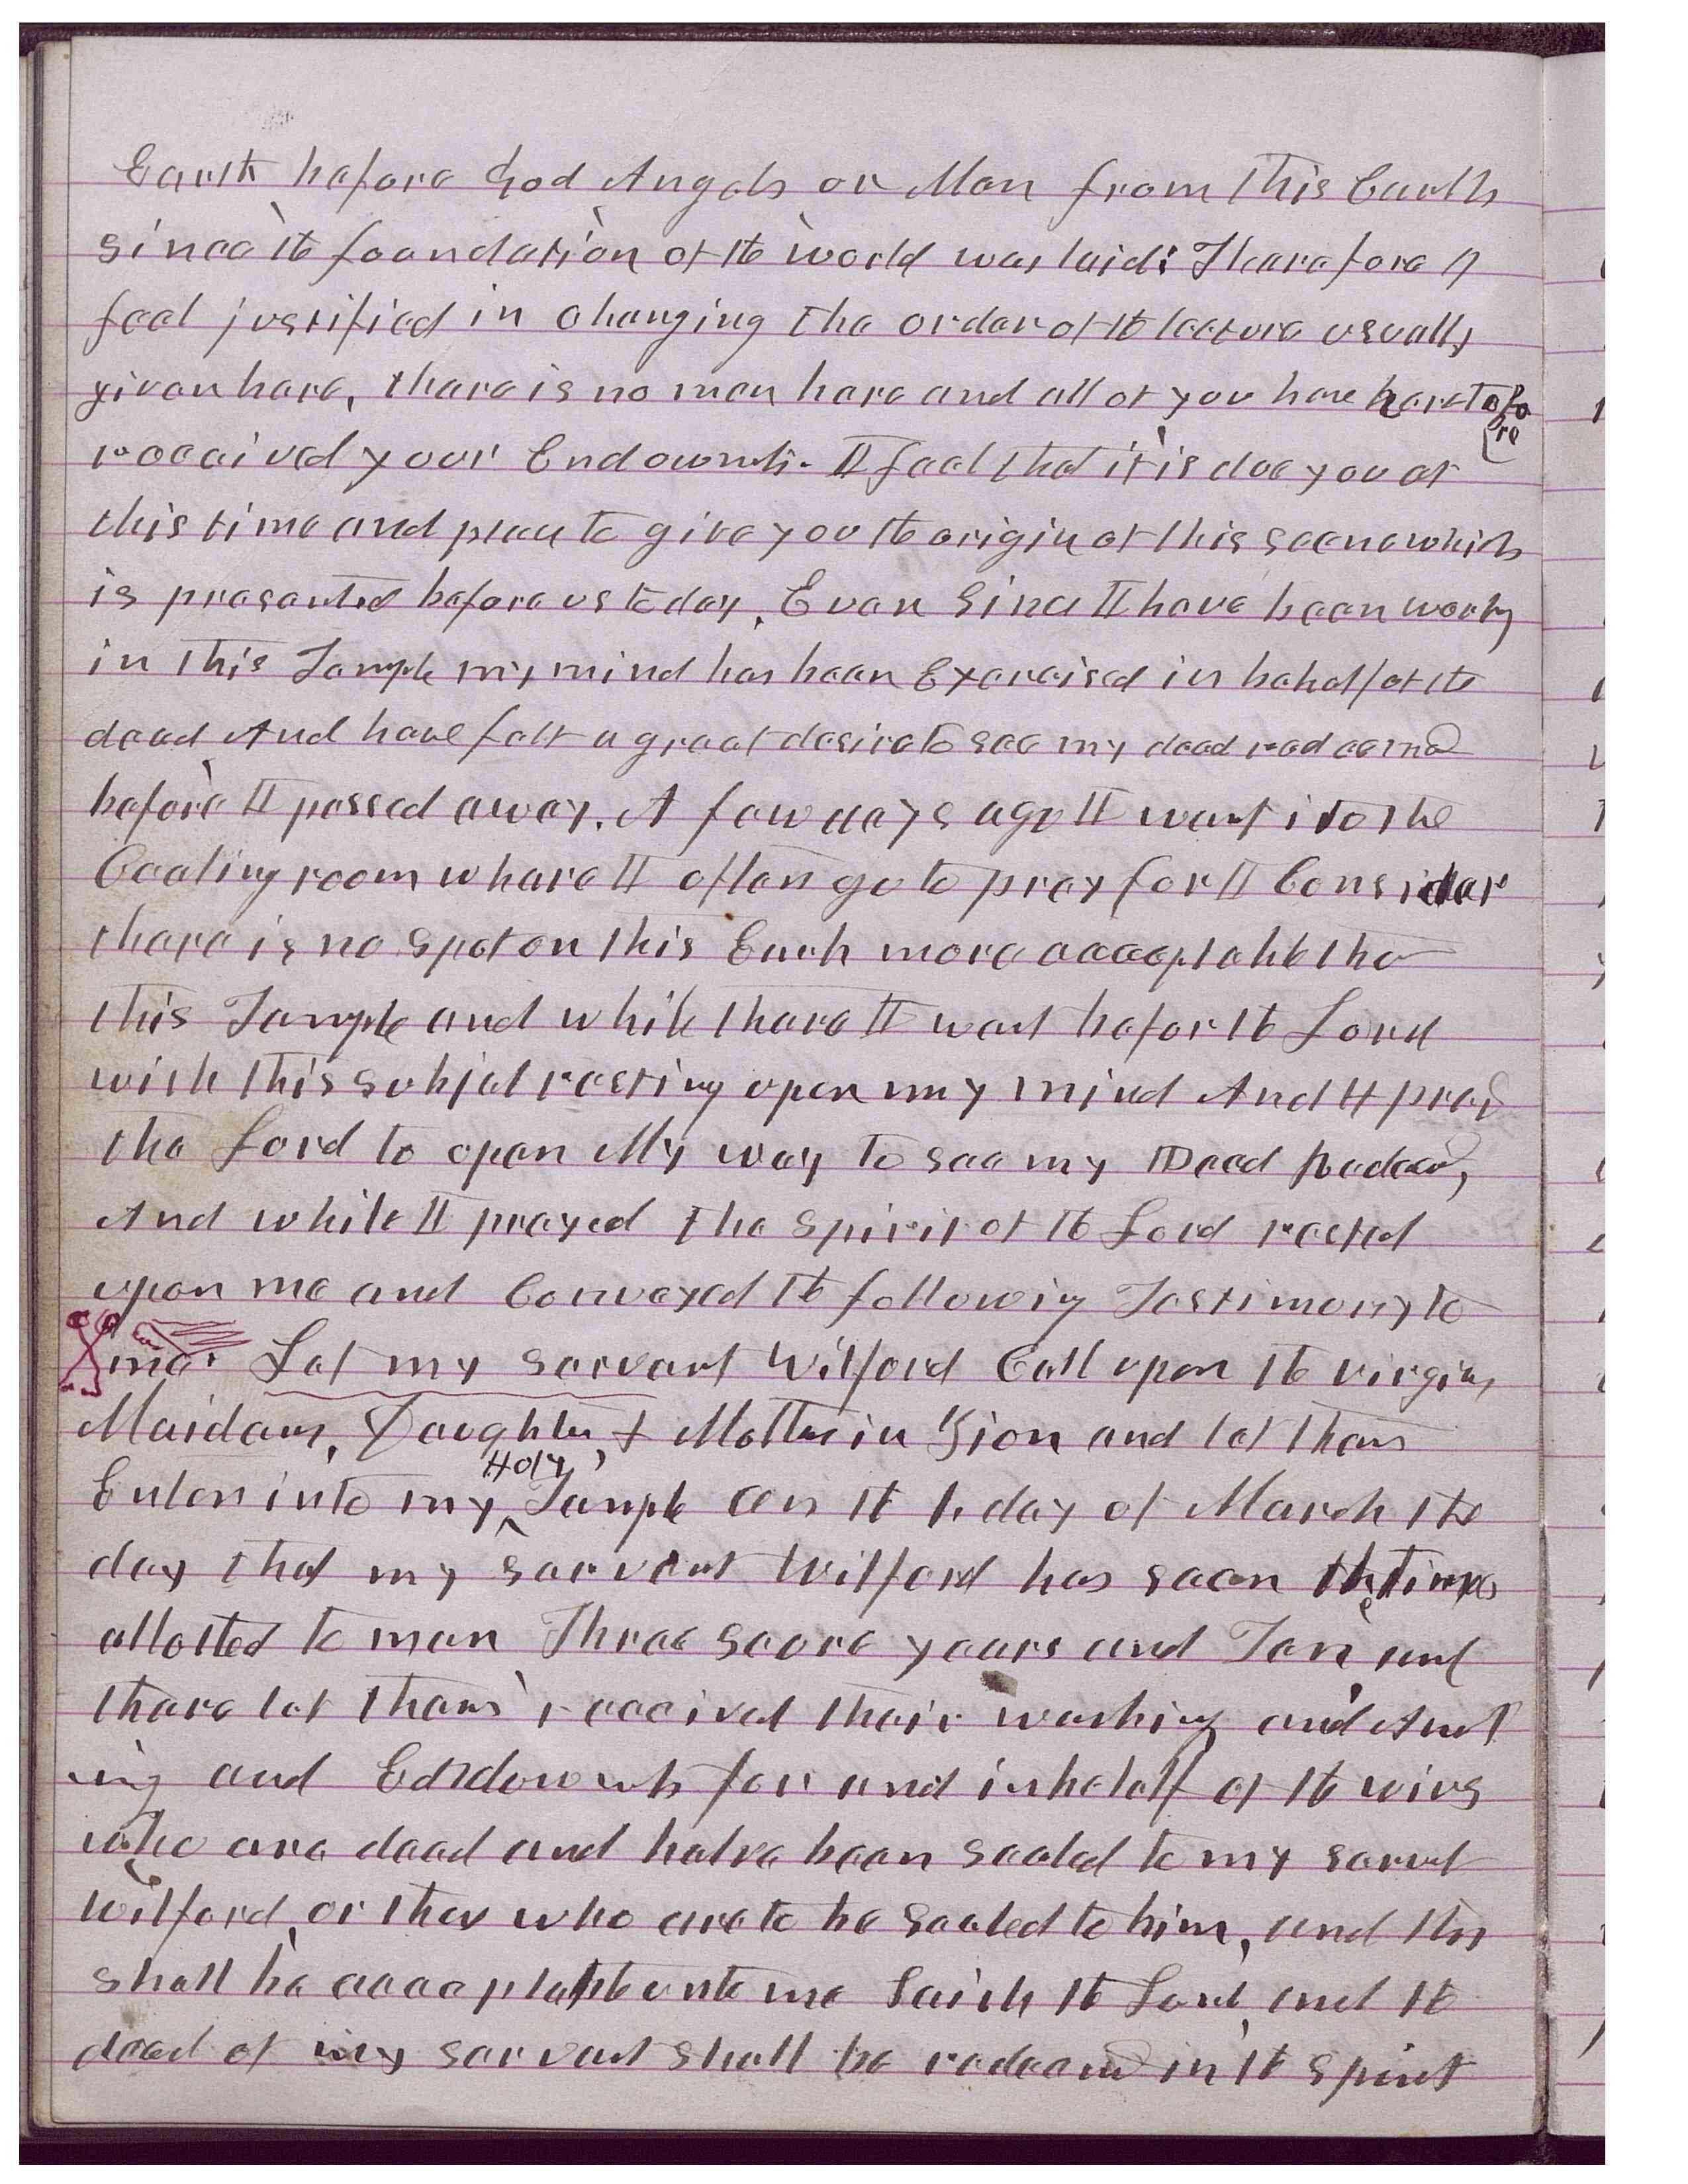 Earth before God Angels or Man from this Earth
since the foundation of the world was laid: Thearefore I
feel justified in changing the order of the lecture usually
given here, there is no man here and all of you have heretofore
received your Endowmts. I feel that it is due you at
this time and place to give you the origin of this scene which
is presented before us to day. Ever since I have been workg
in this Temple my mind has been Exercised in behalf of the
dead And have felt a great desire to see my dead redeemd
before I passed away. A few days ago I went into the
Cealing room where I often go to pray for I Consider
there is no spot on this Earh more acceeptable than
this Temple and while there I went befor the Lord
with this subjet resting upon my mind And I prayd
the Lord to open My way to see my Dead Redeemd,
And while I prayed the spirit of the Lord rested
upon me and Conveyed the following Testimony to
me. Let my servant Wilford Call upon the virgins
Maidans, Daughters & Mothers in Zion and let them
Enter into my Holy Temple on the 1 day of March the
day that my servant Wilford has seen the time
allotted to man Three score years and Ten and
there let them received their washing and Anoint
ing and Endowmts for and in behalf of the wives
who are dead and have been sealed to my servt
Wilford, or thos who are to be sealed to him, and this
shall be acceeptable unto me Saith the Lord, and the
dead of my servant shall be redeemd in the spirit